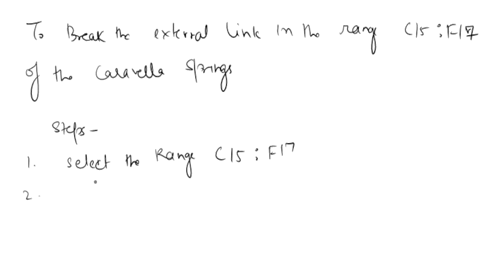 To Break the external link in the rang C15:F17
of the Caravella Springs
Steps -
1. Select the Range C15:F17
2.